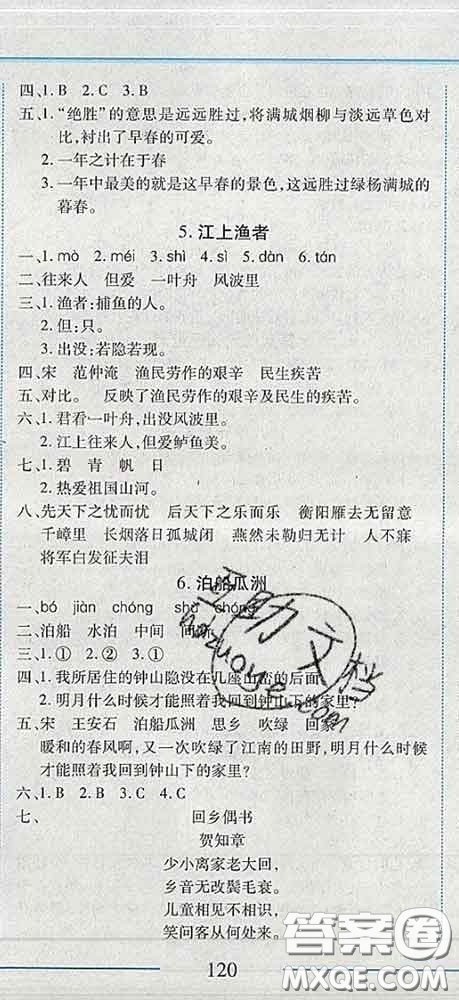 四、1.B 2.C 3.B
五、1.“绝胜”的意思是远远胜过,将满城烟柳与淡远草色对
比,衬出了早春的可爱。
2.一年之计在于春
3.一年中最美的就是这早春的景色,这远胜过绿杨满城的
暮春。
5.江上渔者
一、1.mò 2.méi 3.shì 4.sì 5.dàn 6.tán
二、往来人 但爱 一叶舟 风波里
三、1.渔者:捕鱼的人。
2.但:只。
3.出没:若隐若现。
四、宋 范仲淹 渔民劳作的艰辛 民生疾苦
五、对比。 反映了渔民劳作的艰辛及民生的疾苦。
六、1.君看一叶舟,出没风波里。
2.江上往来人,但爱鲈鱼美。
七、1.碧 青 帆 日
2.热爱祖国山河。
八、先天下之忧而忧 后天下之乐而乐 衡阳雁去无留意
千嶂里 长烟落日孤城闭 燕然未勒归无计 人不寐
将军白发征夫泪
6.泊船瓜洲
一、bó jiàn chóng shù chóng
二、泊船 水泊 中间 间断
三、1.① 2.① 3.①
四、1.我所居住的钟山隐没在几座山峦的后面
2.明月什么时候才能照着我回到钟山下的家里?
五、宋 王安石 泊船瓜洲 思乡 吹绿 回家
暖和的春风啊,又一次吹绿了江南的田野,明月什么时候
才能照着我回到钟山下的家里?
六、1.B 2.B 3.C 4.C
七、 回乡偶书
贺知章
少小离家老大回,
乡音无改鬓毛衰。
儿童相见不相识,
笑问客从何处来。
120
答案圈
MXQE.COM